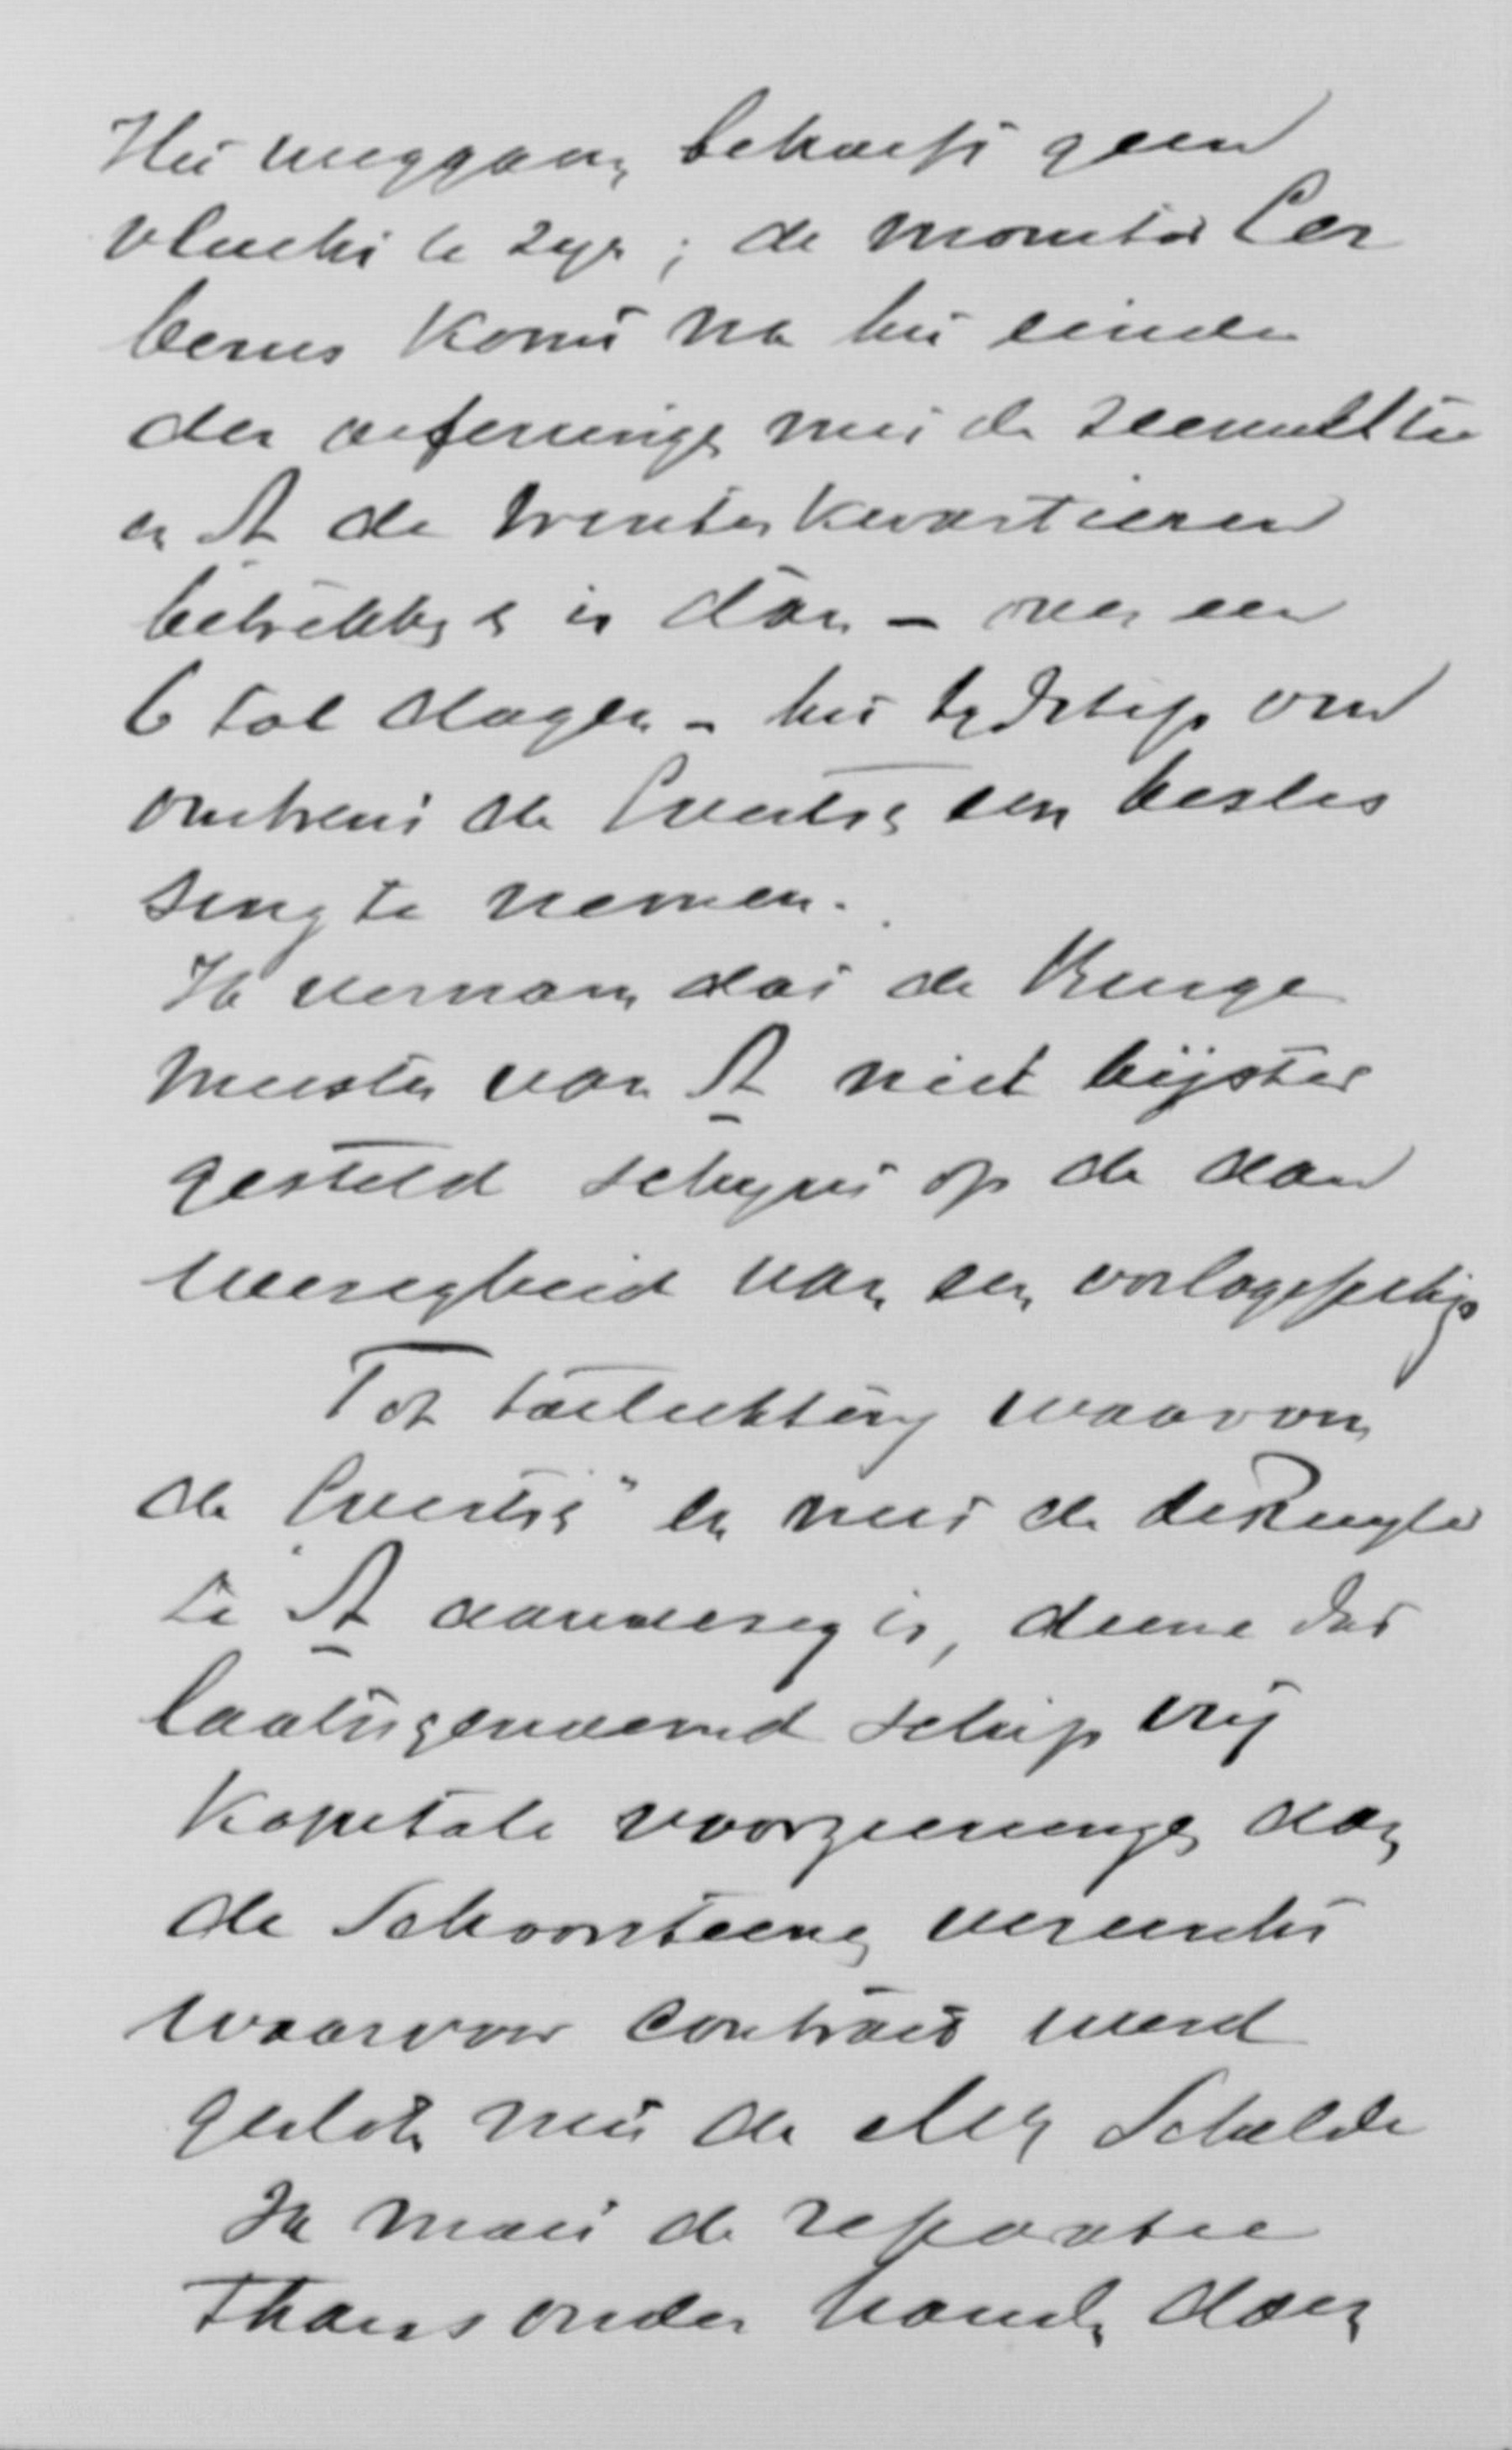 Het weggaan behoeft geen
vlucht te zijn; de monitor Cer
berus komt na het einde
der oefeningen met de zeemilitie
in A de winterkwartieren
betrekken & is dan - over een
6 tal dagen - het tijdstip om
omtrent de Evertsen een beslis
sing te nemen.
Ik vernam dat de Burge
meester van A niet bijster
gesteld schijnt op de aan
wezigheid van een oorlogsschip
Tot toelichting waarom
de "Evertsen" en niet de de Ruyter
te A aanwezig is, diene dat
laatstgenoemd schip vrij
kapitale voorzieningen aan
de Schoorsteenen vereischt
waarvoor contract werd
gesloten met de Mij Schelde
Ik moet de reparatie
thans onder handen doen